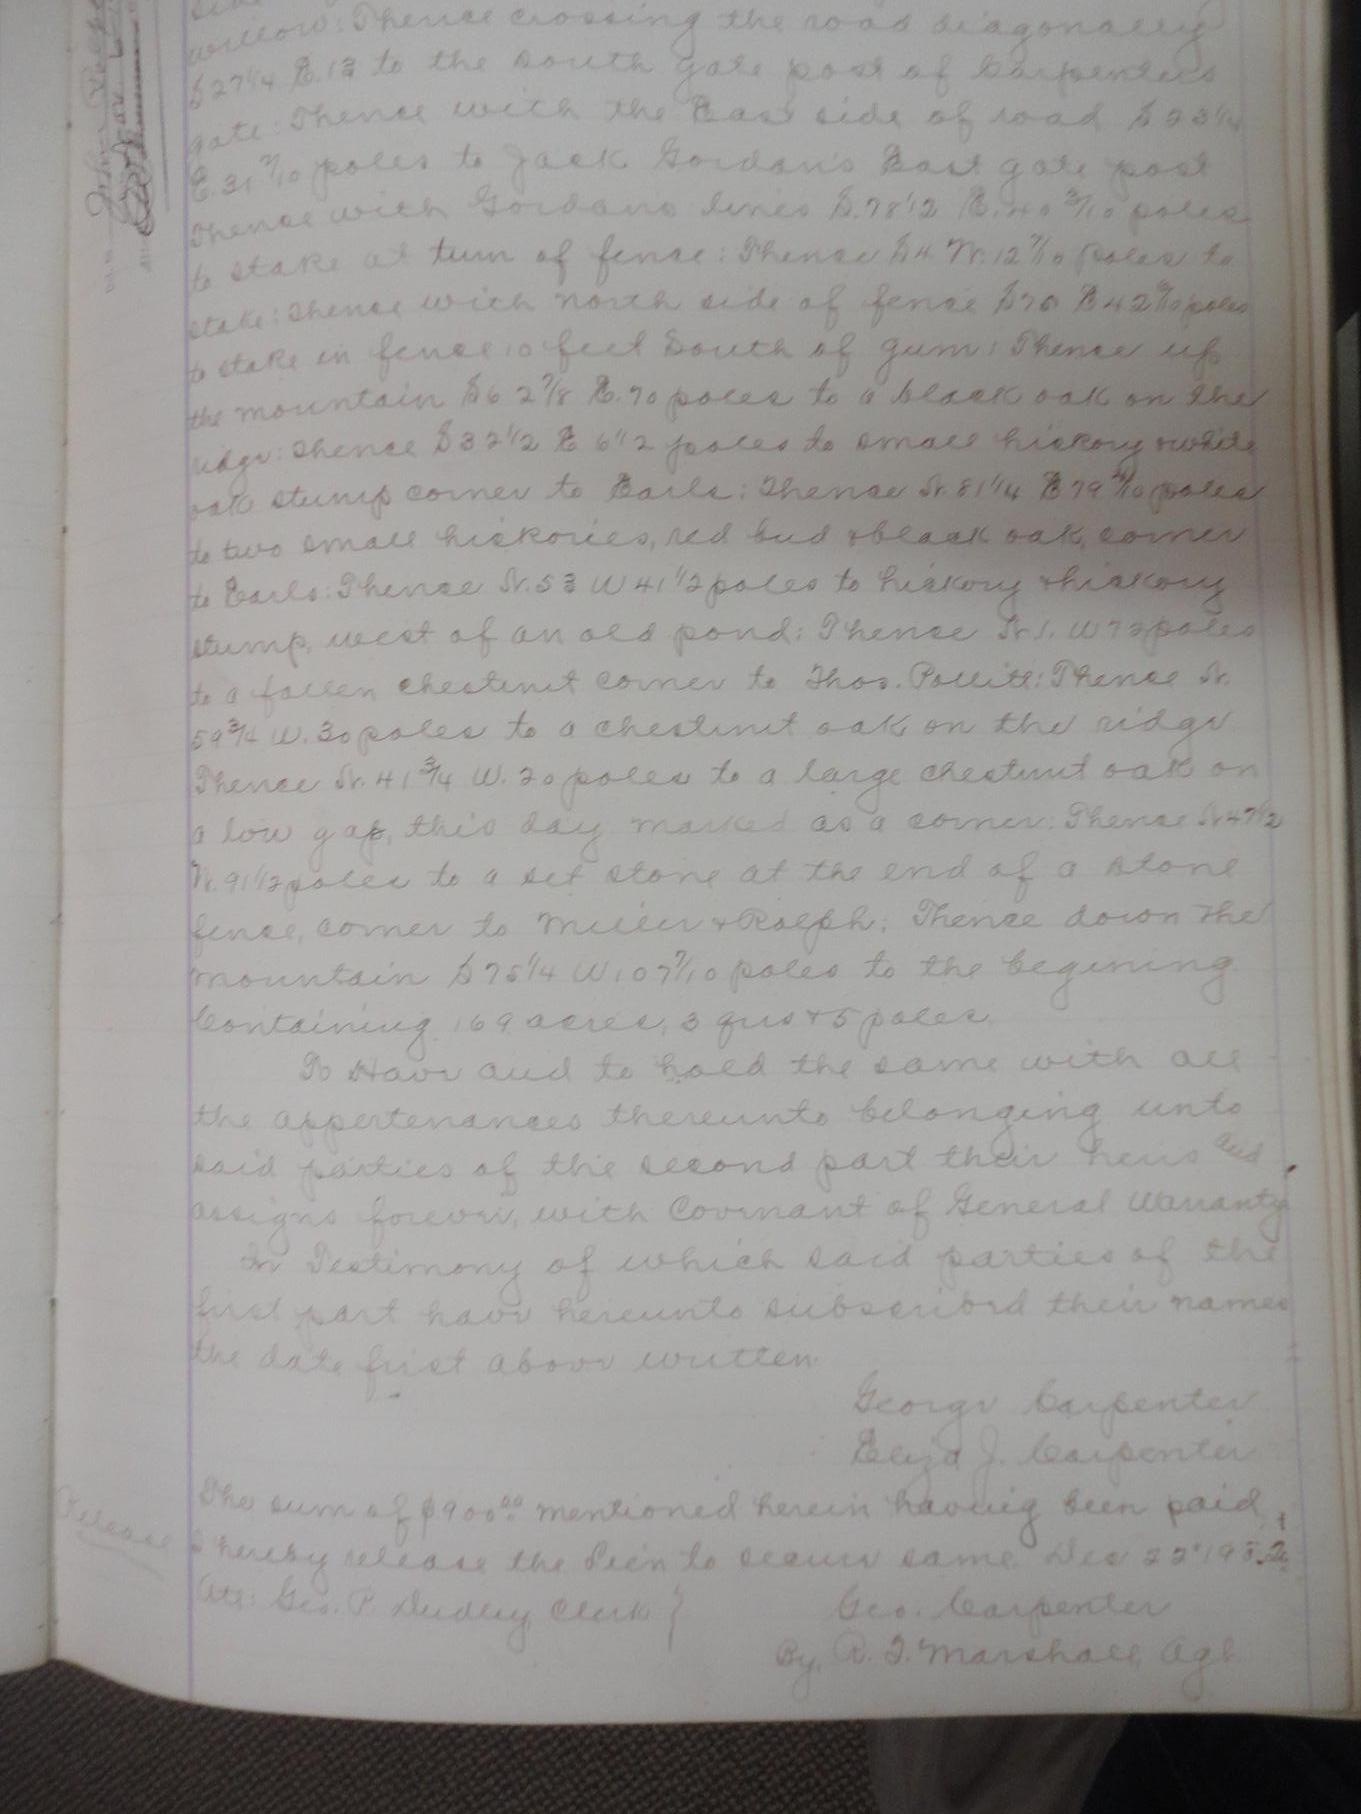 willow: Thence crossing the road diagonally
S 27 1/4 E. 13 to the south gate post of Carpenters
gate: Thence with the East side of road S 23 1/4
E. 31 7/10 poles to Jack Gordan's East gate post
Thence with Gordans lines S. 78 1/2 E. 40 3/10 poles
to stake at turn of fence: Thence S 4 W. 12 7/10 poles to
stake: Thence with north side of fence S 76 E 42 9/10 poles
to stake in fence 10 feet South of gum: Thence up
the mountain S 62 7/8 E. 70 poles to a black oak on the
ridge: Thence S 32 1/2 E 6 1/2 poles to small hickory & white
oak stump corner to Earls: Thence N. 81 1/4 E 79 poles
to two small hickories, red bud & black oak, corner
to Earls: Thence N. 53 W 41 1/2 poles to hickory & hickory
stump, west of an old pond: Thence N. 1. W 72 poles
to a fallen chestnut corner to Thos. Pollitt: Thence N.
59 3/4 W. 30 poles to a chestnut oak on the ridge
Thence N. 41 3/4 W. 20 poles to a large chestnut oak on
a low gap, this day marked as a corner: Thence N 47 1/2
W. 91 1/2 poles to a set stone at the end of a stone
fence, corner to Miller & Ralph; Thence down the
mountain S 75 1/4 W 107 7/10 poles to the begining
Containing 169 acres, 3 qrs & 5 poles.
To Have and to hold the same with all
the appertenances thereunto belonging unto
said parties of the second part their heirs and
assigns forever, with Covenant of General Warranty
In Testimony of which said parties of the
first part have hereunto subscribed their names
the date first above written
George Carpenter
Eliza J. Carpenter
Release
The sum of $900.00 mentioned herein having been paid
I hereby release the lien to secure same Dec 22" 19
Att: Geo. P. Dudley, Clerk }
Geo. Carpenter
By, R. T. Marshall, Agt